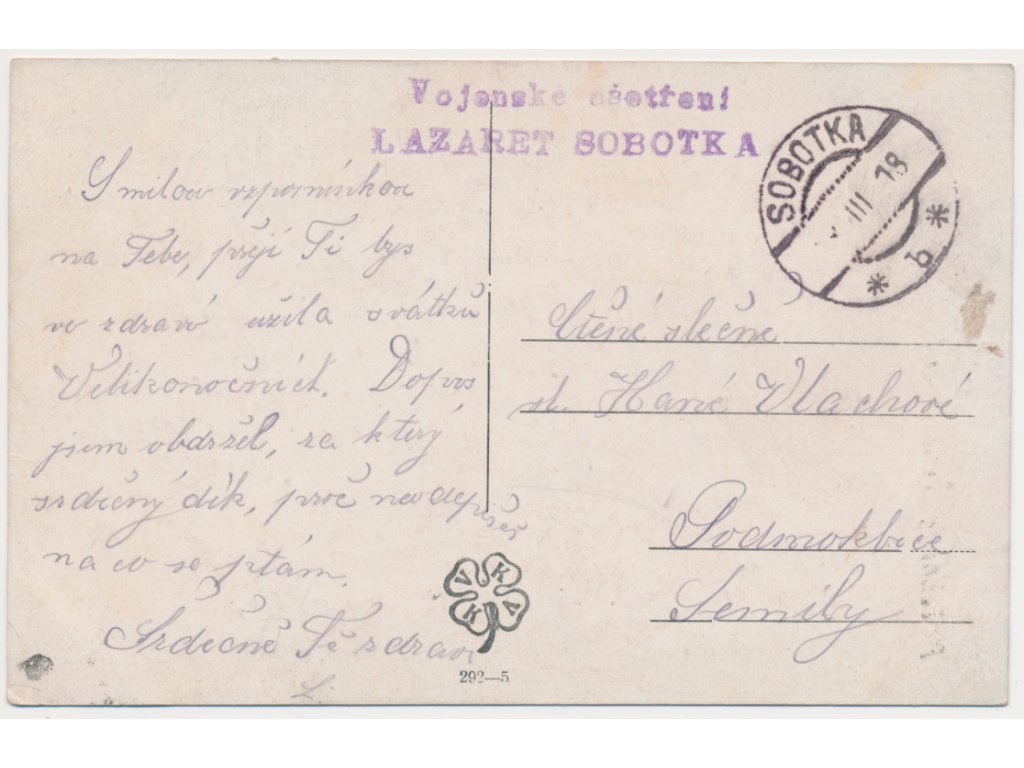 Vojenské ošetření
LAZARET SOBOTKA
SOBOTKA
III 18
* b *
S milou vzpomínkou
na Tebe, přeji Ti bys
ve zdraví užila svátků
Velikonočních. Dopis
jsem obdržel, za který
srdečný dík, proč neodepíšeš
na co se ptám.
Srdečně Tě zdraví
L.
Ctěné slečně
sl. Vlachové
Podmoklice
Semily
VKVK
292—5